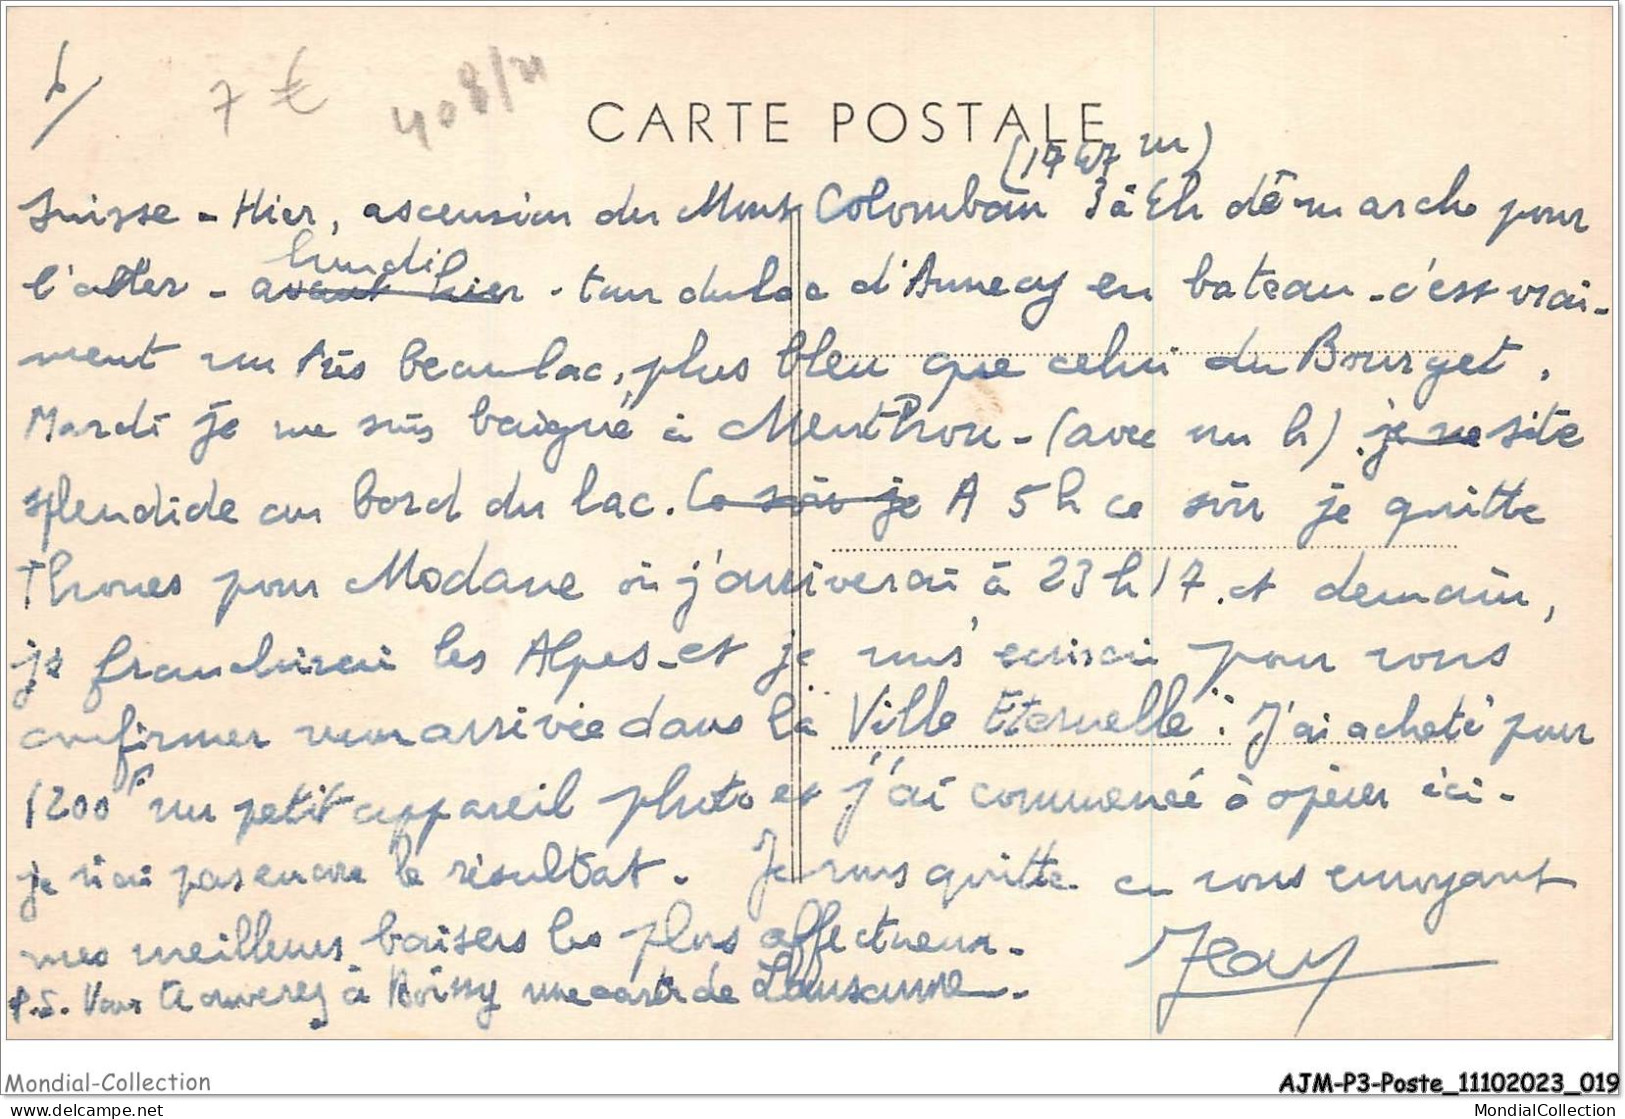 7 €
408/21
CARTE POSTALE
(1747 m)
Suisse - Hier, ascension du Mont Colomban 3 à 4h de marche pour
lundi
l'aller - avant hier - tour du lac d'Annecy en bateau - c'est vrai-
ment un très beau lac, plus bleu que celui du Bourget.
Mardi je me suis baigné à Menthon - (avec un h) je me site
splendide au bord du lac. Ce soir je A 5h ce soir je quitte
Thones pour Modane où j'arriverai à 23h17. et demain,
je franchirai les Alpes - et je vous écrirai pour vous
confirmer mon arrivée dans la "Ville Eternelle". J'ai acheté pour
1200f un petit appareil photo et j'ai commencé à opérer ici -
je n'ai pas encore le résultat. Je vous quitte en vous envoyant
mes meilleurs baisers les plus affectueux.
Jean
P.S. Vous trouverez à Boissy une carte de Lausanne.
Mondial-Collection
AJM-P3-Poste_11102023_019
www.delcampe.net
MondialCollection